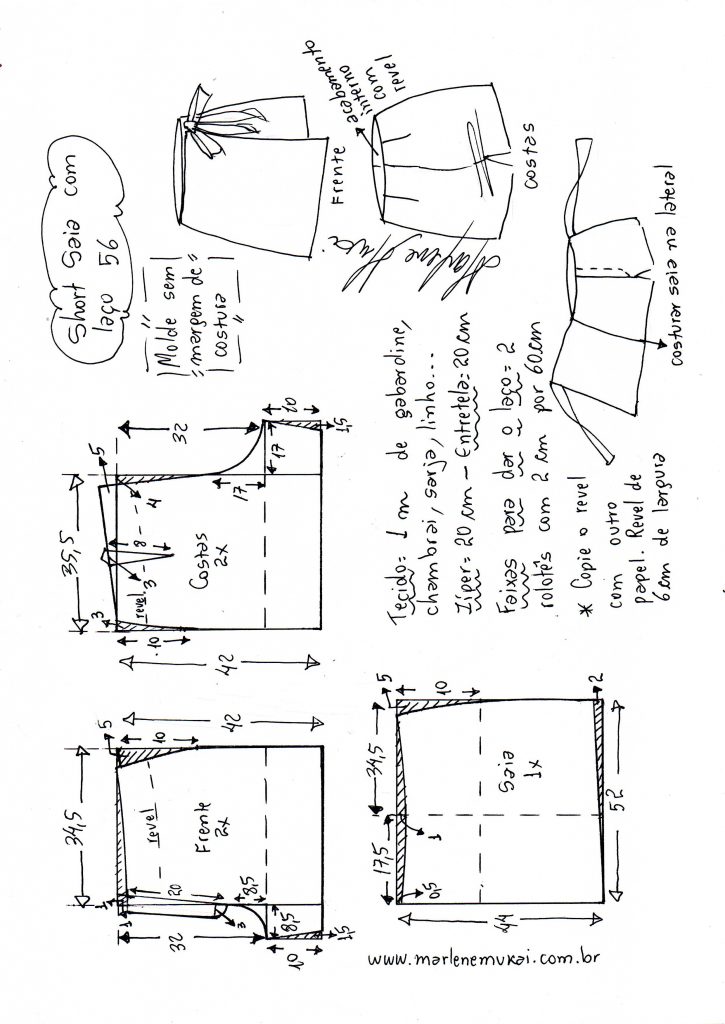 Short Saia com
laço 56
Molde sem
margem de
costura
acabamento
interno
com
revel
Frente
costas
costurar saia na lateral
Marlene Mukai
34,5
5
10
42
revel
Frente
2x
20
32
3
8,5
8,5
10
1,5
1
1
35,5
3
5
4
8
3
revel
Costas
2x
10
42
32
17
17
10
1,5
Tecido= 1 m de gabardine,
chambrai, sarja, linho...
Zíper= 20 cm - Entretela= 20 cm
Faixas para dar o laço= 2
rolotês com 2 cm por 60 cm
* Copie o revel
com outro
papel. Revel de
6 cm de largura
17,5
34,5
5
10
0,5
1
Saia
1x
2
44
52
www.marlenemukai.com.br